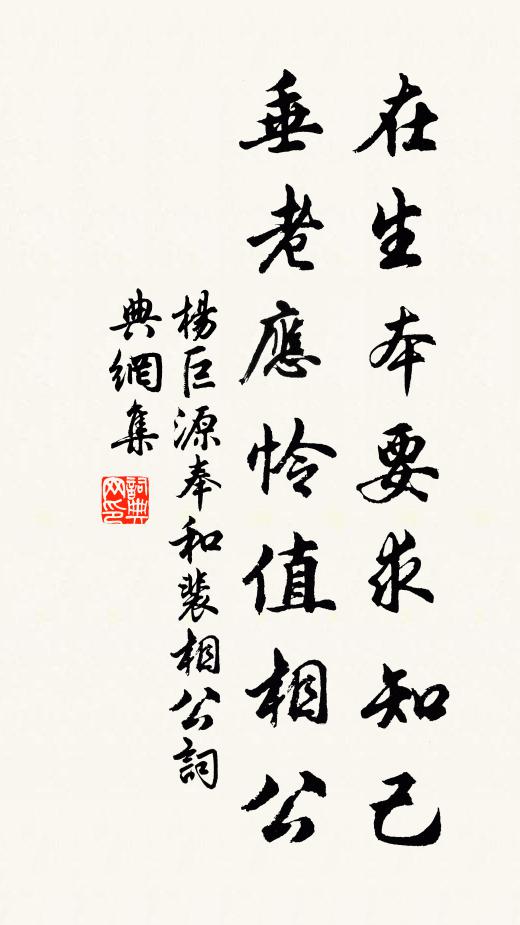 在生本要求知己
垂老應怜值相公
楊巨源奉和裴相公詞
典網集
詞典网印